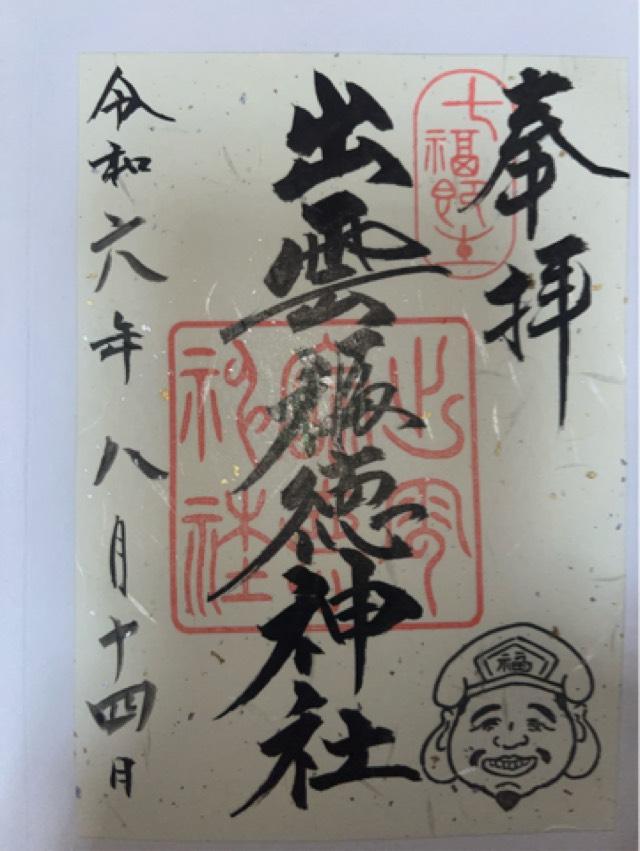 奉拝
七福即生
出雲福徳神社
令和六年八月十四日
福